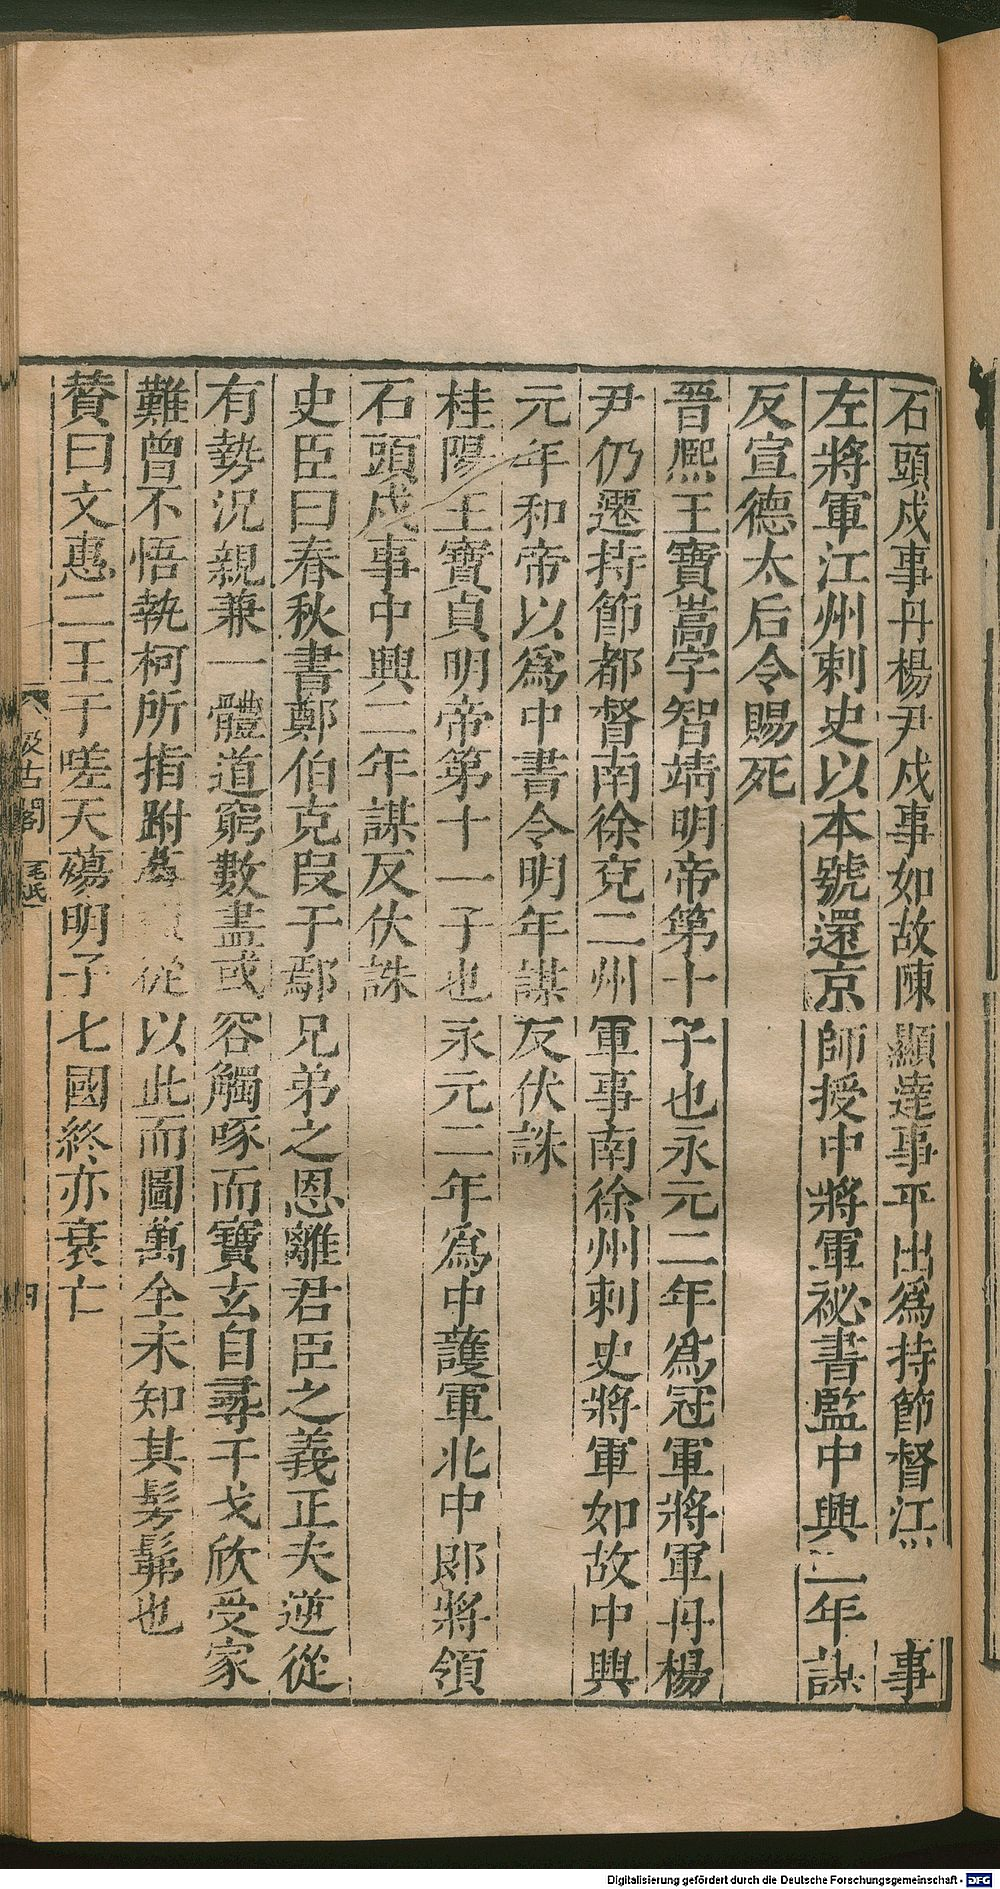 石頭戍事丹楊尹戍事如故陳顯達事平出爲持節督江事
左將軍江州刺史以本號還京師授中將軍祕書監中興二年謀
反宣德太后令賜死
晉熙王寶嵩字智靖明帝第十子也永元二年爲冠軍將軍丹楊
尹仍遷持節都督南徐兗二州軍事南徐州刺史將軍如故中興
元年和帝以爲中書令明年謀反伏誅
桂陽王寶貞明帝第十一子也永元二年爲中護軍北中郎將領
石頭戍事中興二年謀反伏誅
史臣曰春秋書鄭伯克段于鄢兄弟之恩離君臣之義正夫逆從
有勢況親兼一體道窮數盡或容觸啄而寶玄自尋干戈欣受家
難曾不悟執柯所指跗萼從以此而圖萬全未知其髣髴也
贊曰文惠二王于嗟夭殤明子七國終亦衰亡
汲古閣
毛氏
Digitalisierung gefördert durch die Deutsche Forschungsgemeinschaft - DFG